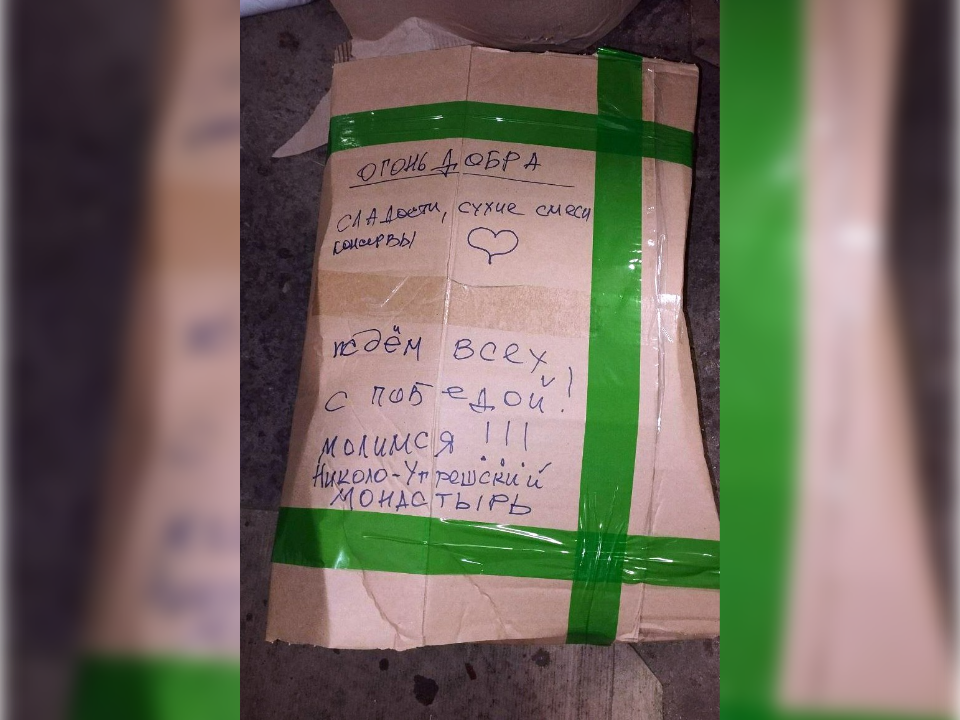 ОГОНЬ ДОБРА
СЛАДости, сухие смеси
консервы
ждём всех
с победой!
молимся !!!
Николо-Угрешский
МОНАСТЫРЬ